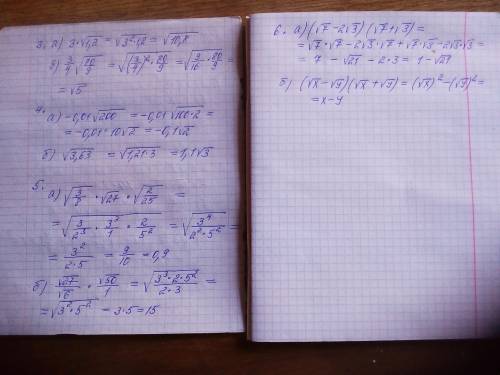 3. а) 3·√1,2 = √3²·1,2 = √10,8
б) 3/4 √80/9 = √(3/4)²·80/9 = √9/16·80/9 =
= √5
4. а) -0,01√200 = -0,01√100·2 =
= -0,01·10√2 = -0,1√2
б) √3,63 = √1,21·3 = 1,1√3
5. а) √3/8 · √27 · √2/25 =
= √3/2³ · 3³/1 · 2/5² = √3⁴/2²·5² =
= 3²/2·5 = 9/10 = 0,9
б) √27/√6 · √50/1 = √3³·2·5²/2·3 =
= √3²·5² = 3·5 = 15
6. а) (√7-2√3)(√7+√3) =
= √7·√7-2√3·√7+√7·√3-2√3·√3 =
= 7 - √21 - 2·3 = 1-√21
б) (√x-√y)(√x+√y) = (√x)²-(√y)² =
= x-y